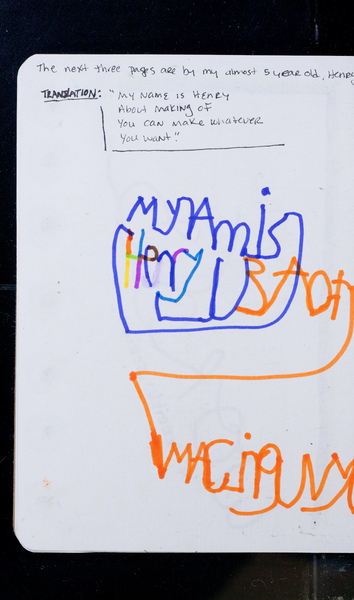 The next three pages are by my almost 5 year old, Henry
TRANSLATION: "MY NAME IS HENRY
ABOUT MAKING OF
YOU CAN MAKE WHATEVER
YOU WANT."
MYNAmis
Henry